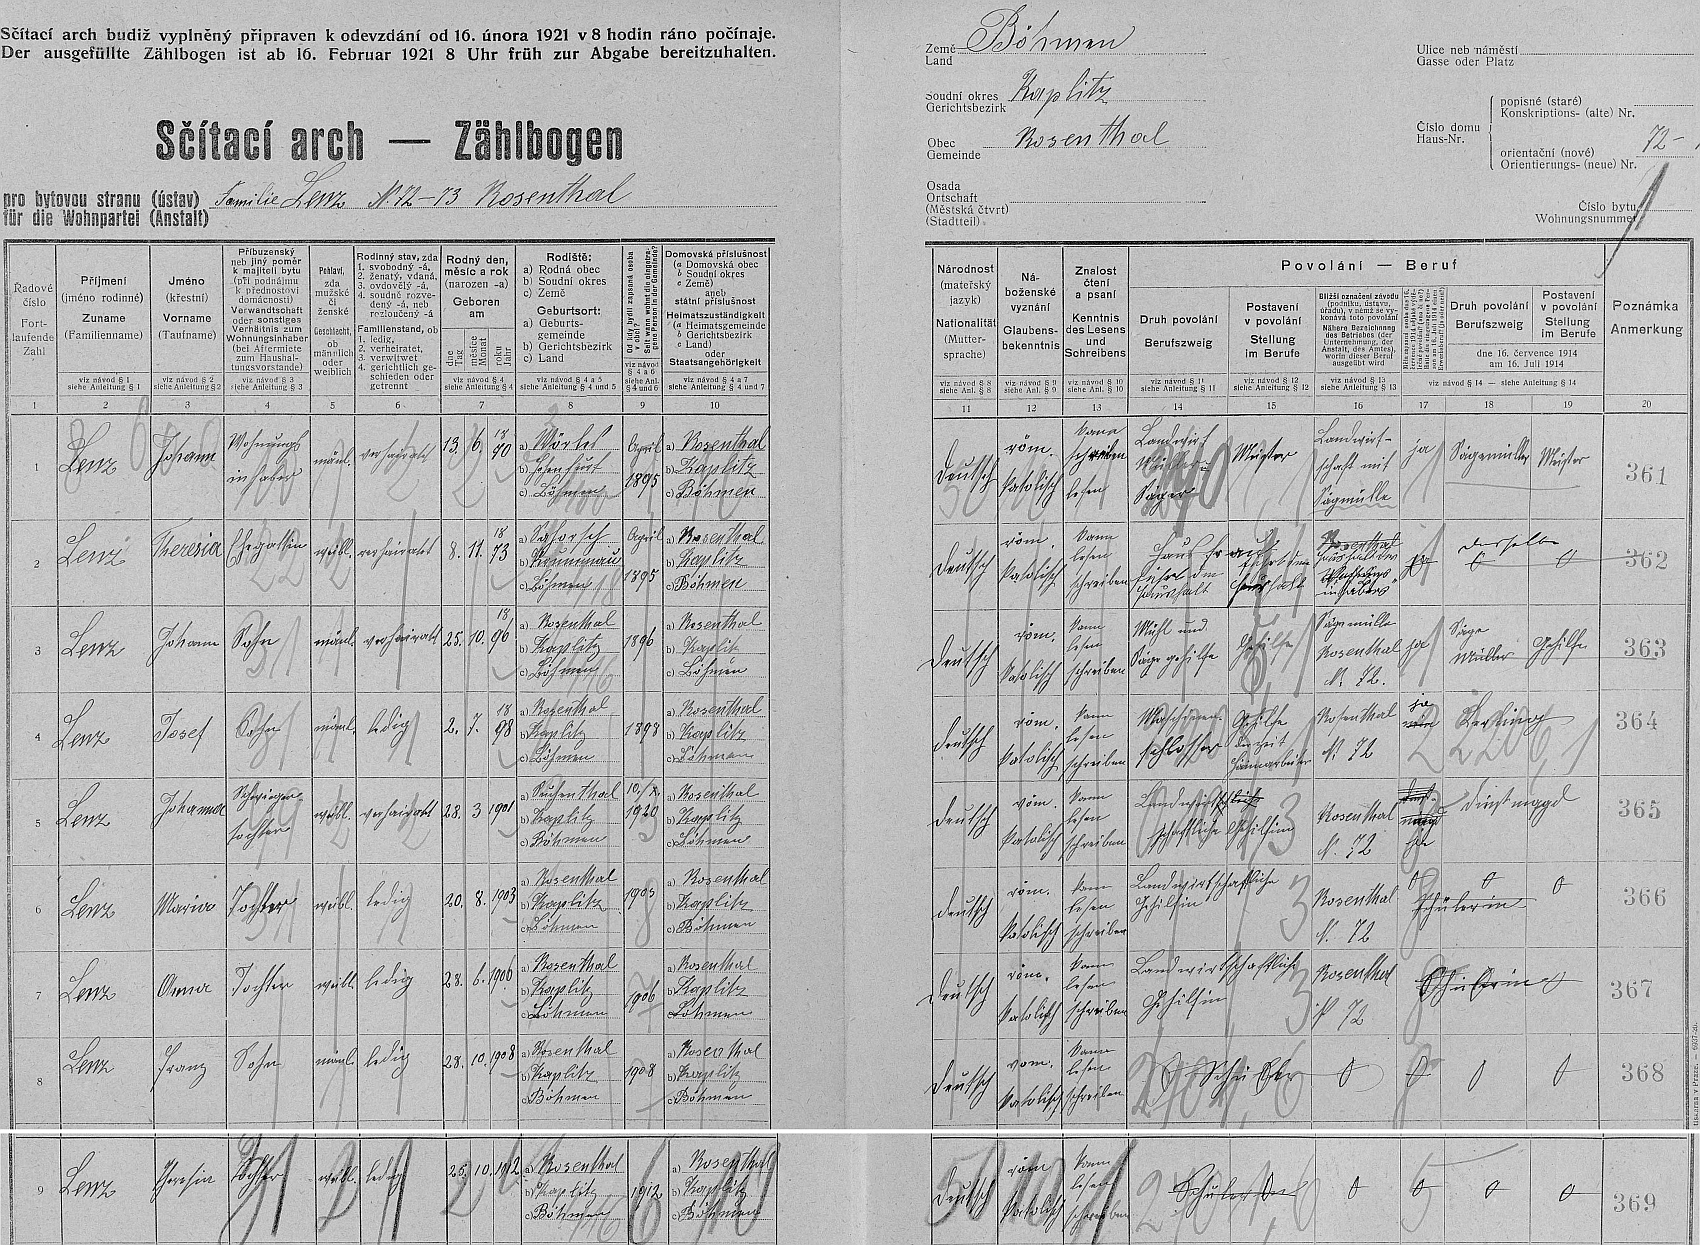 Sčítací arch budiž vyplněný připraven k odevzdání od 16. února 1921 v 8 hodin ráno počínaje.
Der ausgefüllte Zählbogen ist ab 16. Februar 1921 8 Uhr früh zur Abgabe bereitzuhalten.
Sčítací arch — Zählbogen
pro bytovou stranu (ústav)
für die Wohnpartei (Anstalt)
Familie Lenz N. 72-73 Rosenthal
Země
Land
Böhmen
Soudní okres
Gerichtsbezirk
Kaplitz
Obec
Gemeinde
Rosenthal
Osada
Ortschaft
(Městská čtvrť)
(Stadtteil)
Ulice neb náměstí
Gasse oder Platz
Číslo domu
Haus-Nr.
popisné (staré)
Konskriptions- (alte) Nr.
orientační (nové)
Orientierungs- (neue) Nr.
72-
Číslo bytu
Wohnungsnummer
1
Řadové číslo
Fort-laufende Zahl
Příjmení
(jméno rodinné)
Zuname
(Familienname)
viz návod § 1
siehe Anleitung § 1
Jméno
(křestní)
Vorname
(Taufname)
viz návod § 2
siehe Anleitung § 2
Příbuzenský
neb jiný poměr
k majiteli bytu
(při podnájmu
k přednostovi
domácnosti)
Verwandtschaft
oder sonstiges
Verhältnis zum
Wohnungsinhaber
(bei Aftermiete
zum Haushal-
tungsvorstande)
viz návod § 3
siehe Anleitung § 3
Pohlaví,
zda
mužské
či
ženské
Geschlecht,
ob
männlich
oder
weiblich
Rodinný stav, zda
1. svobodný -á,
2. ženatý, vdaná,
3. ovdovělý -á,
4. soudně rozve-
dený -á, neb
rozloučený -á
Familienstand, ob
1. ledig,
2. verheiratet,
3. verwitwet
4. gerichtlich ge-
schieden oder
getrennt
Rodný den,
měsíc a rok
(narozen -a)
Geboren
am
dne
Tag
měsíce
Monat
roku
Jahr
viz návod § 4
siehe Anleitung § 4
Rodiště:
a) Rodná obec
b) Soudní okres
c) Země
Geburtsort:
a) Geburts-
gemeinde
b) Gerichtsbezirk
c) Land
viz návod § 4 a 5
siehe Anleitung § 4 und 5
Od kdy bydlí zapsaná osoba v obci?
Seit wann wohnt die eingetragene Person in der Gemeinde?
viz návod
§ 4 a 6
siehe Anl.
Domovská příslušnost
(a Domovská obec
b Soudní okres
c Země)
aneb
státní příslušnost
Heimatszuständigkeit
(a Heimatsgemeinde
b Gerichtsbezirk
c Land)
oder
Staatsangehörigkeit
viz návod § 4 a 7
siehe Anleitung § 4 und 7
Národnost
(mateřský
jazyk)
Nationalität
(Mutter-
sprache)
viz návod § 8
siehe Anleitung § 8
Ná-
boženské
vyznání
Glaubens-
bekenntnis
viz návod § 9
siehe Anleitung § 9
Znalost
čtení
a psaní
Kenntnis
des Lesens
und
Schreibens
viz návod § 10
siehe Anleitung § 10
Povolání — Beruf
Druh povolání
Berufszweig
viz návod § 11
siehe Anleitung § 11
Postavení
v povolání
Stellung
im Berufe
viz návod § 12
siehe Anleitung § 12
Bližší označení závodu
(podniku, ústavu,
úřadu), v němž se vy-
konává toto povolání
Nähere Bezeichnung
des Betriebes (der
Unternehmung, der
Anstalt, des Amtes),
worin dieser Beruf
ausgeübt wird
viz návod § 13
siehe Anleitung § 13
Druh povolání
Berufszweig
Postavení
v povolání
Stellung
im Berufe
dne 16. července 1914
am 16. Juli 1914
viz návod § 14 — siehe Anleitung § 14
Poznámka
Anmerkung
1 2 3 4 5 6 7 8 9 10 11 12 13 14 15 16 17 18 19 20
1 Lenz Johann Wohnungs inhaber männl. verheiratet 13. 6. 1870 b) Hohenfurt c) Böhmen April 1895 a) Rosenthal b) Kaplitz c) Böhmen Deutsch röm. katolisch kann schreiben lesen Landwirt Säger Meister Landwirt-schaft mit Sägmühle ja Sägemüller Meister 361
2 Lenz Theresia Ehegattin weibl. verheiratet 8. 11. 1873 b) Krummau c) Böhmen April 1895 a) Rosenthal b) Kaplitz c) Böhmen Deutsch röm. katolisch kann lesen schreiben Hausfrau führt den Haushalt ja derselbe 0 0 362
3 Lenz Johann Sohn männl. verheiratet 25. 10. 1896 a) Rosenthal b) Kaplitz c) Böhmen 1896 a) Rosenthal b) Kaplitz c) Böhmen Deutsch röm. katolisch kann lesen schreiben Mühl und Sägegehilfe Gehilfe Sägemülle Rosenthal N. 72. ja Säge Müller Gehilfe 363
4 Lenz Josef Sohn männl. ledig 2. 7. 1898 a) Rosenthal b) Kaplitz c) Böhmen 1898 a) Rosenthal b) Kaplitz c) Böhmen Deutsch röm. katolisch kann lesen schreiben Maschinen-schlosser Gehilfe Rosenthal N. 72 ja nein 364
5 Lenz Johanna Schwieger tochter weibl. verheiratet 28. 3 1901 b) Kaplitz c) Böhmen 10./X. 1920 a) Rosenthal b) Kaplitz c) Böhmen Deutsch röm. katolisch kann lesen schreiben Landwirtschaftliche Gehilfin Rosenthal N. 72 ja Dinstmagd 365
6 Lenz Maria Tochter weibl. ledig 20. 8. 1903 a) Rosenthal b) Kaplitz c) Böhmen 1903 a) Rosenthal b) Kaplitz c) Böhmen Deutsch röm. katolisch kann lesen schreiben Landwirtschaftliche Gehilfin Rosenthal N. 72 0 0 0 Schülerin 366
7 Lenz Anna Tochter weibl. ledig 28. 6. 1906 a) Rosenthal b) Kaplitz c) Böhmen 1906 a) Rosenthal b) Kaplitz c) Böhmen Deutsch röm. katolisch kann lesen schreiben Landwirtschaftliche Gehilfin Rosenthal N 72 Schülerin 0 367
8 Lenz Franz Sohn männl. ledig 28. 10. 1908 a) Rosenthal b) Kaplitz c) Böhmen 1908 a) Rosenthal b) Kaplitz c) Böhmen Deutsch röm. katolisch kann lesen schreiben Schüler 0 0 0 0 368
9 Lenz Theresia Tochter weibl. ledig 25. 10. 1912 a) Rosenthal b) Kaplitz c) Böhmen 1912 a) Rosenthal b) Kaplitz c) Böhmen Deutsch röm. katolisch kann lesen schreiben Schülerin 0 0 0 0 369